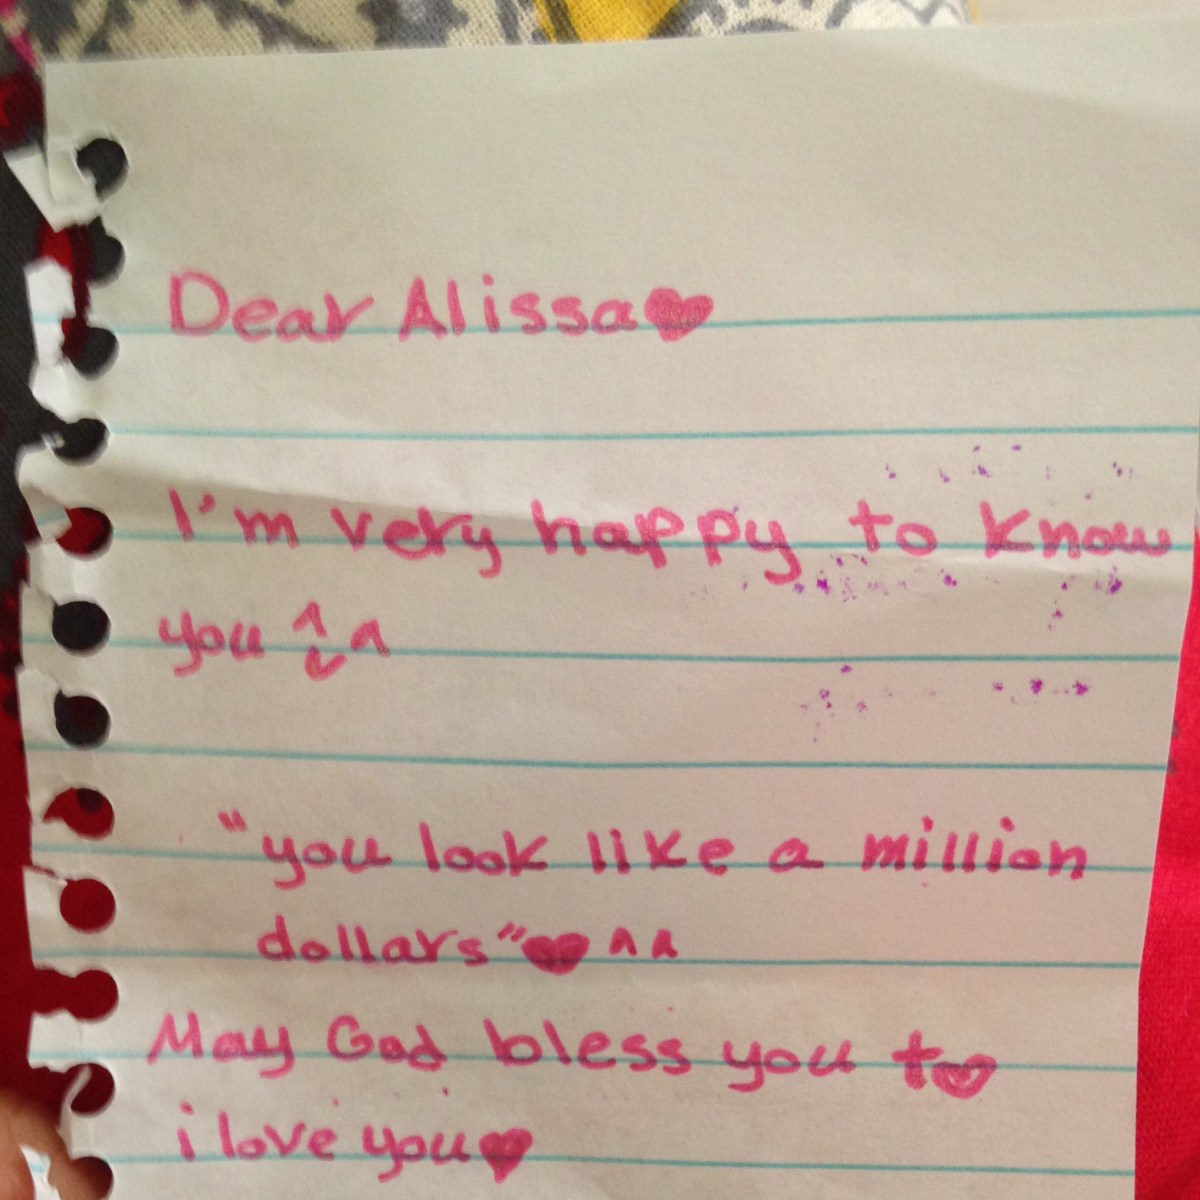 Dear Alissa♥
I'm very happy to know
you ^ᵕ^
"you look like a million
dollars"♥ ^^
May God bless you to
i love you♥